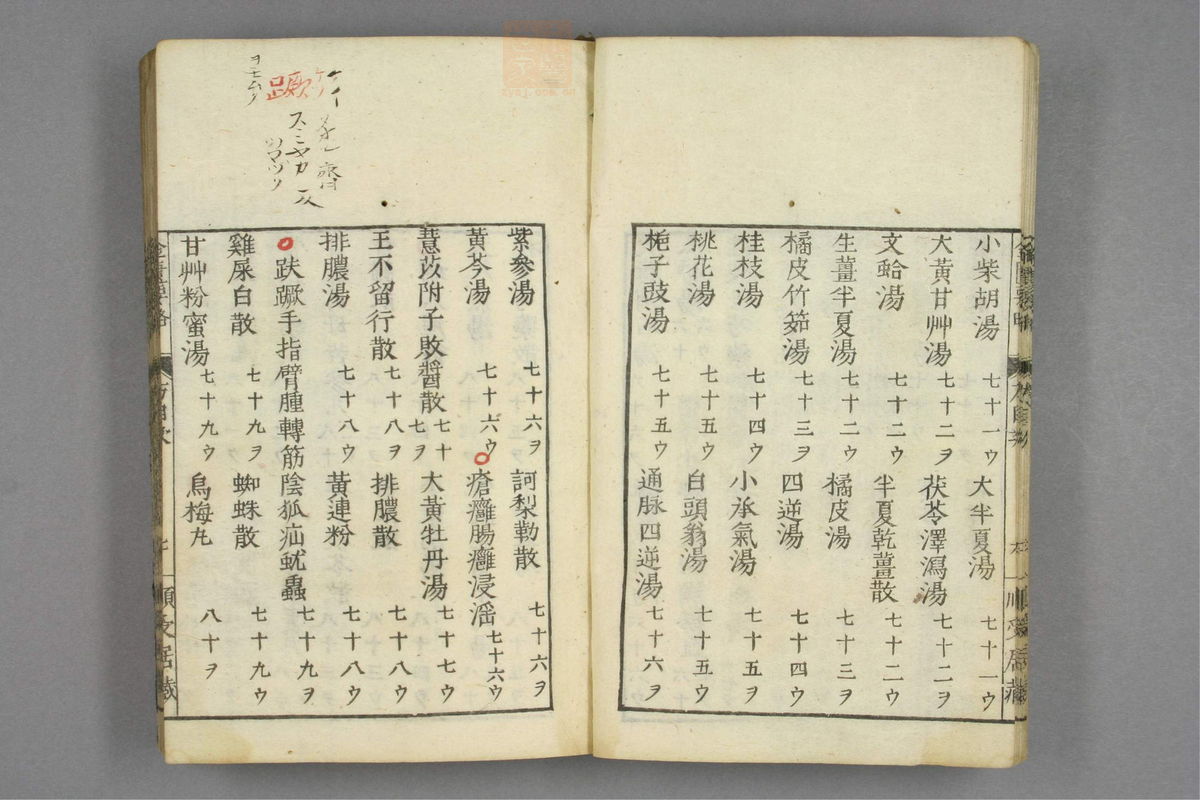 小柴胡湯 七十一ウ 大半夏湯 七十一ウ
大黃甘艸湯 七十二ヲ 茯苓澤瀉湯 七十二ヲ
文蛤湯 七十二ウ 半夏乾薑散 七十二ウ
生薑半夏湯 七十二ウ 橘皮湯 七十三ヲ
橘皮竹筎湯 七十三ヲ 四逆湯 七十四ウ
桂枝湯 七十四ウ 小承氣湯 七十五ヲ
桃花湯 七十五ウ 白頭翁湯 七十五ウ
梔子豉湯 七十五ウ 通脉四逆湯 七十六ヲ
紫參湯 七十六ヲ 訶梨勒散 七十六ヲ
黃芩湯 七十六ウ 瘡癰腸癰浸滛 七十六ウ
薏苡附子敗醬散 七十七ヲ 大黃牡丹湯 七十七ウ
王不留行散 七十八ヲ 排膿散 七十八ウ
排膿湯 七十八ウ 黃連粉 七十八ウ
趺蹶手指臂腫轉筋陰狐疝蚘蟲 七十九ヲ
雞屎白散 七十九ヲ 蜘蛛散 七十九ウ
甘艸粉蜜湯 七十九ウ 烏梅丸 八十ヲ
順受居藏